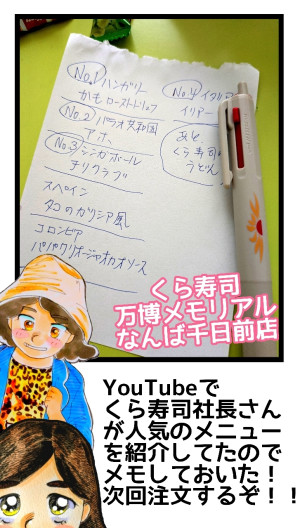 No.1 ハンガリー
かもローストトリュフ
No.2 パラオ共和国
アホ、
No.3 シンガポール
チリクラブ
スペイン
タコのガリシア風
コロンビア
パパクリオージャオガオソース
No.4 イタリア
イリアー
あと
くら寿司の
うどん
くら寿司
万博メモリアル
なんば千日前店
YouTubeで
くら寿司社長さん
が人気のメニュー
を紹介してたので
メモしておいた！
次回注文するぞ！！